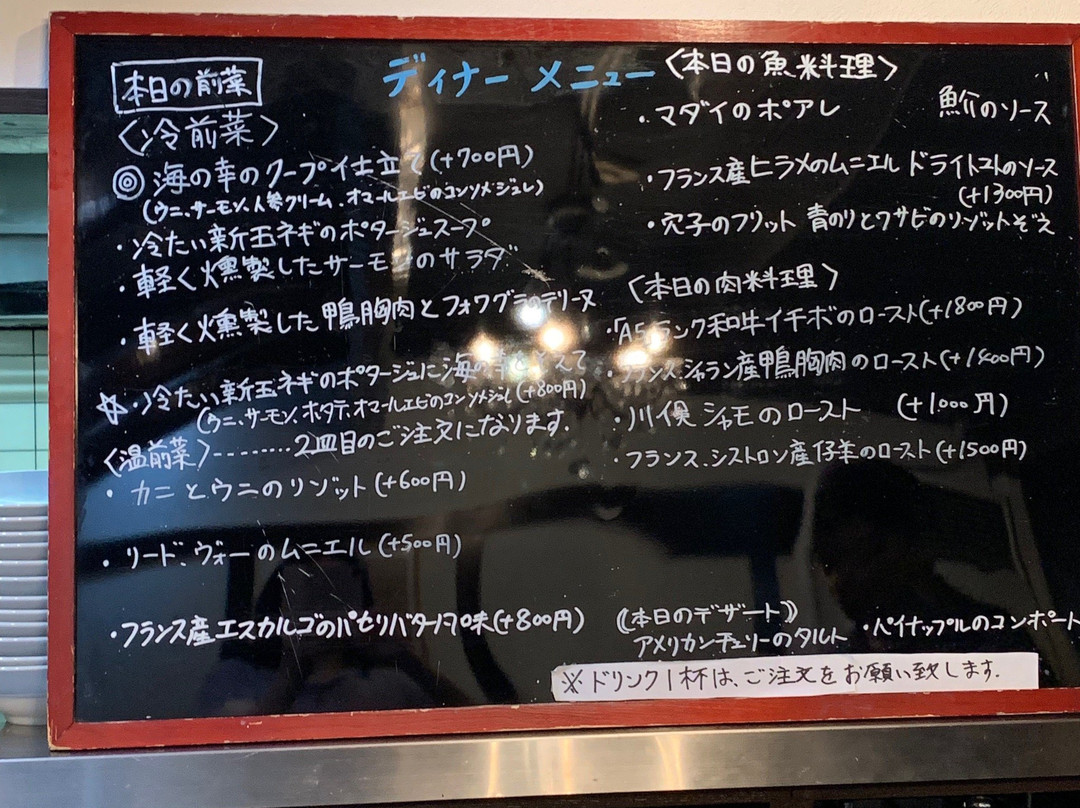 ディナー メニュー
本日の前菜
〈冷前菜〉
◎ 海の幸のクープ仕立て(+700円)
(ウニ、サーモン、人参クリーム、オマールエビのコンソメジュレ)
・冷たい新玉ネギのポタージュスープ
・軽く燻製したサーモンのサラダ
・軽く燻製した鴨胸肉とフォワグラのテリーヌ
☆・冷たい新玉ネギのポタージュに海の幸をそえて
(ウニ、サーモン、ホタテ、オマールエビのコンソメジュレ(+800円)
〈温前菜〉---------2皿目のご注文になります.
・カニとウニのリゾット(+600円)
・リード、ヴォーのムニエル(+500円)
・フランス産エスカルゴのパセリバター風味(+800円)
〈本日の魚料理〉
・マダイのポアレ 魚介のソース
・フランス産ヒラメのムニエル ドライトマトのソース
(+1300円)
・穴子のフリット 青のりとワサビのリゾットぞえ
〈本日の肉料理〉
・「A5」ランク和牛イチボのロースト(+1800円)
・フランス、シャラン産鴨胸肉のロースト(+1400円)
・川俣シャモのロースト (+1000円)
・フランス、シストロン産仔羊のロースト(+1500円)
《本日のデザート》
アメリカンチェリーのタルト ・パイナップルのコンポート
※ドリンク1杯は、ご注文をお願い致します.